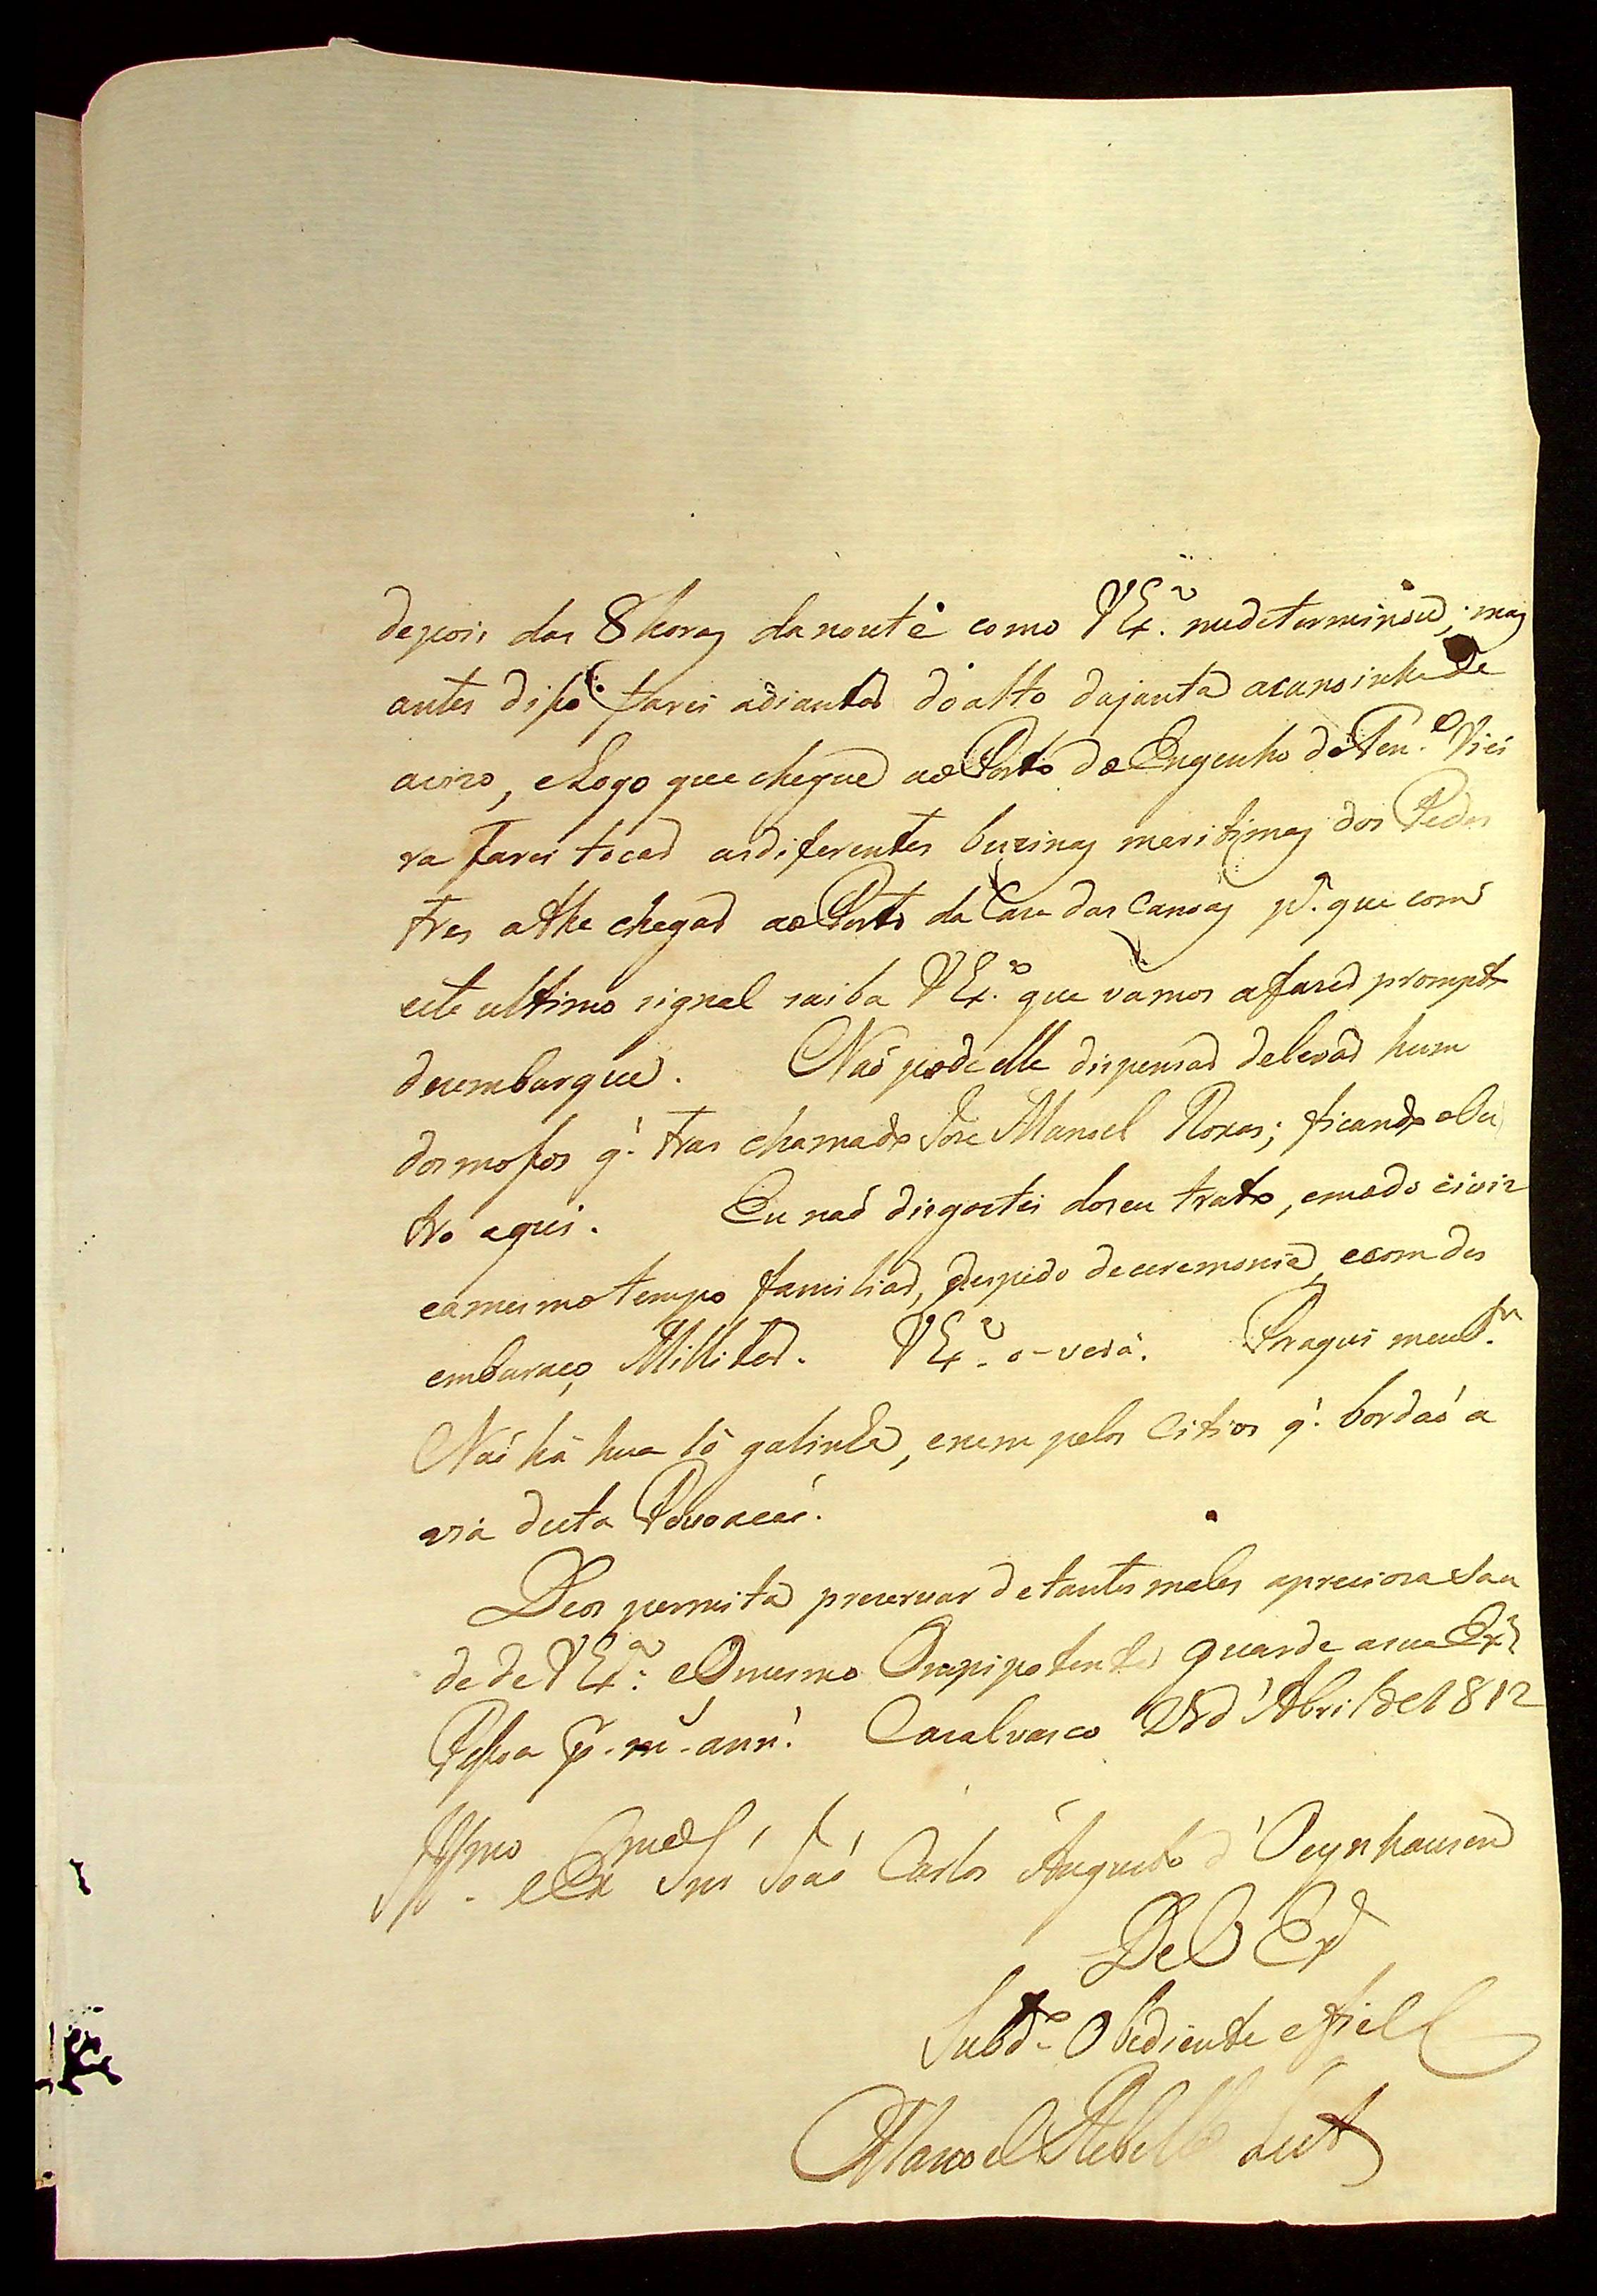 depois das 8 horas da noute como V Ex.ª me determinou; mas
antes disso farei adiantar do alto da junta a canoinha de
avizo, e Logo que chegue ao Porto do Engenho do Ten.e Viei
ra farei tocar as diferentes buzinas meritimas dos Pedes
tres athe chegar ao Porto da Caza das Canoas p.ª que com
este ultimo signal saiba V Ex.ª que vamos a fazer prompto
dezembarque. Naõ pode elle dispensar de levar hum
dos mossos q.' tras chamado Joze Manoel Roxas; ficando o Ou
tro aqui. Eu naõ disgostei do seu trato, e modo civiz
e a mesmo tempo familiar, despido de ceremonia, e com des
embaraço Millitar. V Ex.ª o-verá. Por aqui meu S.r
Naõ há hua só galinha, e nem pelos Citios q.' bordaõ a
via desta Povoaçaõ.
Deos permita prezervar de tantos males a precioza Sau
de de V Ex.ª e O mesmo Omnipotente guarde a sua Ex.ª
Pessoa p.r m.s ann.s Cazalvasco d'Abril de 1812
Ill.mo e Ex.mo Snr' Joaõ Carlos Augusto d'Oeynhausen
De V Ex.ª
Subd.o Obediente e fiel
Manoel Rebello